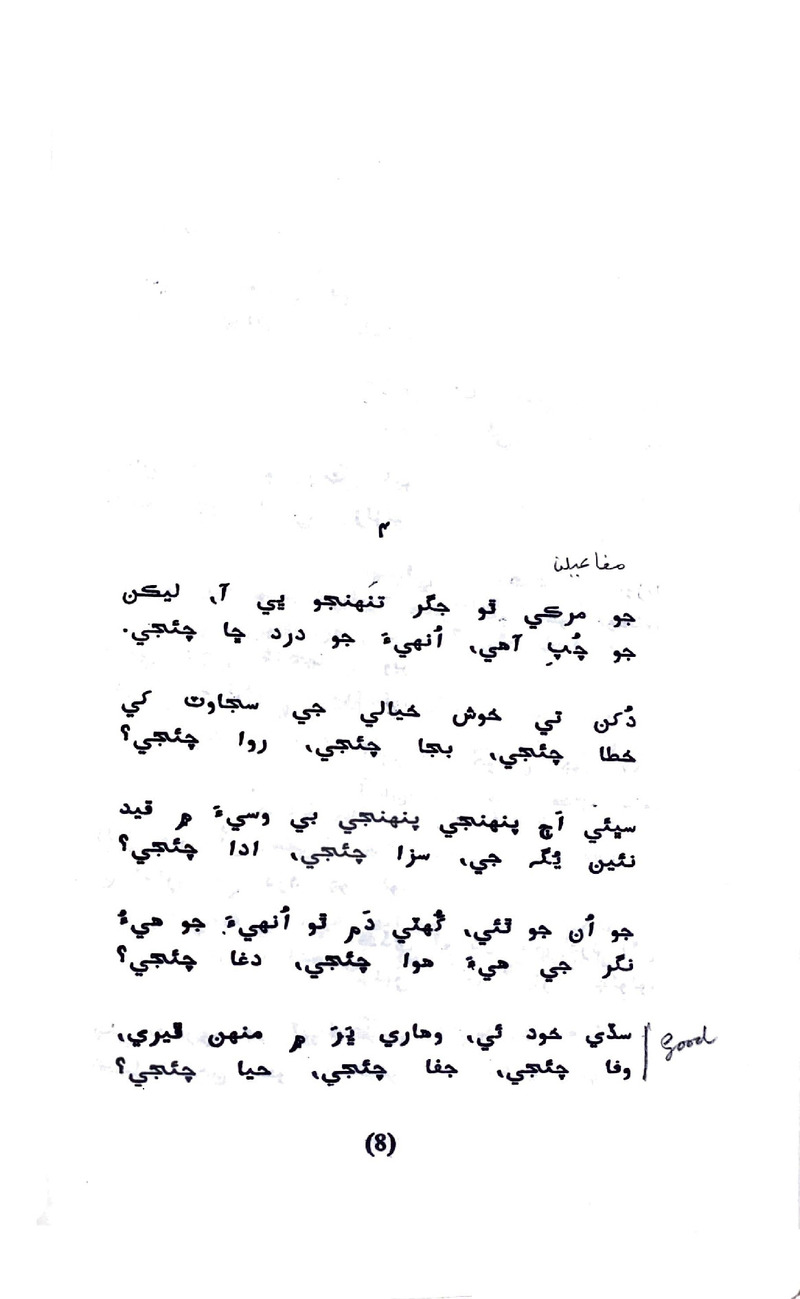 ۴
مفاعيلن
جو مرڪي ٿو جگر تنَهنجو ڀي آ، ليڪن
جو چُپِ آهي، اُنهيءَ جو درد ڇا چئجي.
دُکن تي خوش خيالي جي سجاوٽ کي
خطا چئجي، بجا چئجي، روا چئجي؟
سڀئي اَڄ پنهنجي پنهنجي بي وسيءَ ۾ قيد
نئين يُگہ جي، سزا چئجي، ادا چئجي؟
جو اُن جو ٿئي، گُھٽي دَم ٿو اُنهيءَ جو هيءُ
نگر جي هيءَ هوا چئجي، دغا چئجي؟
سڏي خود ئي، وهاري ڀَرَ ۾ منهن ڦيري،
وفا چئجي، جفا چئجي، حيا چئجي؟
Good
(8)